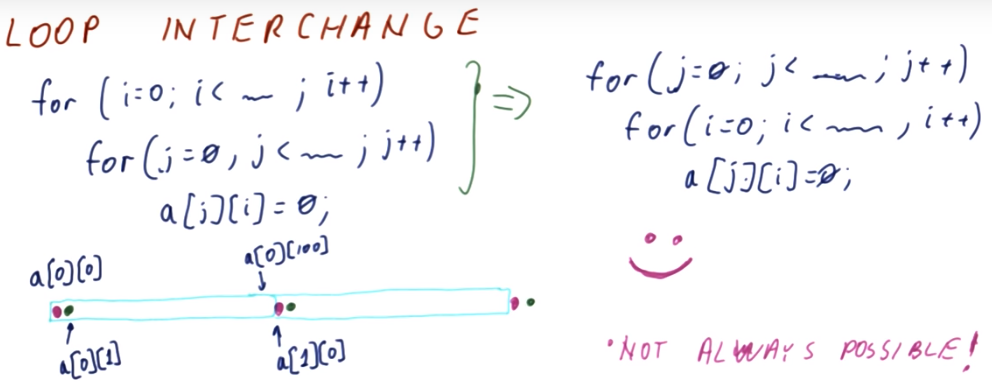 LOOP INTERCHANGE
for (i=0; i< ; i++)
for(j=0, j< ; j++)
a[j][i]=0;
=>
for(j=0; j< ; j++)
for(i=0; i< , i++)
a[j][i]=0;
a[0][0]
a[0][100]
a[0][1]
a[1][0]
•NOT ALWAYS POSSIBLE!